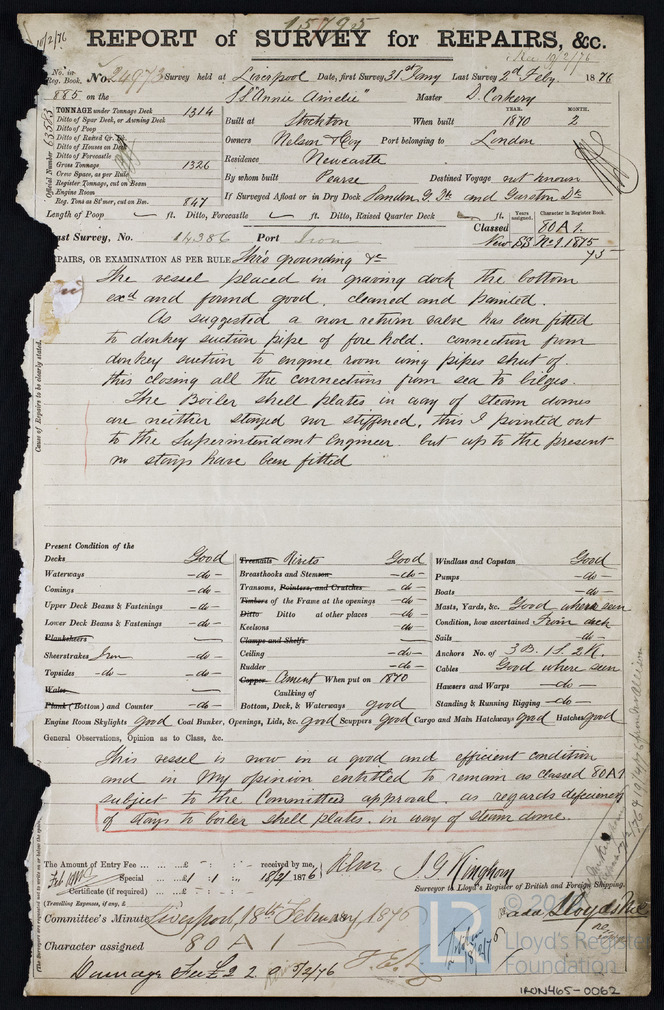 15795
10/2/76
REPORT of SURVEY for REPAIRS, &c.
Rec 10/2/76
No. in Reg. Book. No. 24973 Survey held at Liverpool Date, first Survey 31st Jany Last Survey 2d Feby 1876
885 on the S.S. "Annie Ainslie" Master D. Corkery
TONNAGE under Tonnage Deck 1314
Ditto of Spar Deck, or Awning Deck
Ditto of Poop
Ditto of Raised Qr. Dk.
Ditto of Houses on Deck
Ditto of Forecastle
Gross Tonnage 1326
Crew Space, as per Rule
Register Tonnage, cut on Beam
Engine Room
Reg. Tons as St'mer, cut on Bm. 847
Official Number 63513
YEAR. MONTH.
Built at Stockton When built 1870 2
Owners Nelson & Coy Port belonging to London
Residence Newcastle
By whom built Pearse Destined Voyage not known
If Surveyed Afloat or in Dry Dock Sandon G. Dk and Garston Dk
Length of Poop ft. Ditto, Forecastle ft. Ditto, Raised Quarter Deck ft. Years assigned. Character in Register Book.
Classed 80 A 1.
Last Survey, No. 14386 Port Iron New SS No 1 1875
EPAIRS, OR EXAMINATION AS PER RULE This grounding &c
The vessel placed in graving dock the bottom
exd and found good. cleaned and painted.
As suggested a non return valve has been fitted
to donkey suction pipe of fore hold. connection from
donkey suction to engine room wing pipes shut of.
this closing all the connections from sea to bilges.
The Boiler shell plates in way of steam domes
are neither stayed nor stiffened, this I pointed out
to the Superintendant Engineer. but up to the present
no stays have been fitted
Cause of Repairs to be clearly stated.
Present Condition of the
Decks Good
Waterways do
Comings do
Upper Deck Beams & Fastenings do
Lower Deck Beams & Fastenings do
Planksheers
Sheerstrakes Iron do
Topsides do do
Wales
Plank (Bottom) and Counter do
Treenails Rivets Good
Breasthooks and Stemson do
Transoms, Pointers, and Crutches do
Timbers of the Frame at the openings do
Ditto Ditto at other places do
Keelsons do
Clamps and Shelfs
Ceiling do
Rudder do
Copper Cement When put on 1870
Caulking of
Bottom, Deck, & Waterways good
Windlass and Capstan Good
Pumps do
Boats do
Masts, Yards, &c. Good where seen
Condition, how ascertained From deck
Sails do
Anchors No. of 3 B. 1 S. 2 K.
Cables Good where seen
Hawsers and Warps do
Standing & Running Rigging do
Engine Room Skylights good Coal Bunker, Openings, Lids, &c. good Scuppers Good Cargo and Main Hatchways good Hatches good
General Observations, Opinion as to Class, &c.
This vessel is now in a good and efficient condition
and in my opinion entitled to remain as classed 80A1
subject to the Committees approval. as regards deficiency
of stays to boiler shell plates. in way of steam dome.
The Amount of Entry Fee £ : : received by me,
Special £ 1 : 1 : 18/2/ 1876
Certificate (if required)
(Travelling Expenses, if any, £
J. G. Kinghorn
Surveyor to Lloyd's Register of British and Foreign Shipping.
Committee's Minute Liverpool, 18th February, 1876
Character assigned 80 A 1
Damage Fee £ 2 2 0 5/2/76
18/2/76
© 20
Lloyd's Register
Foundation
IRON465-0062